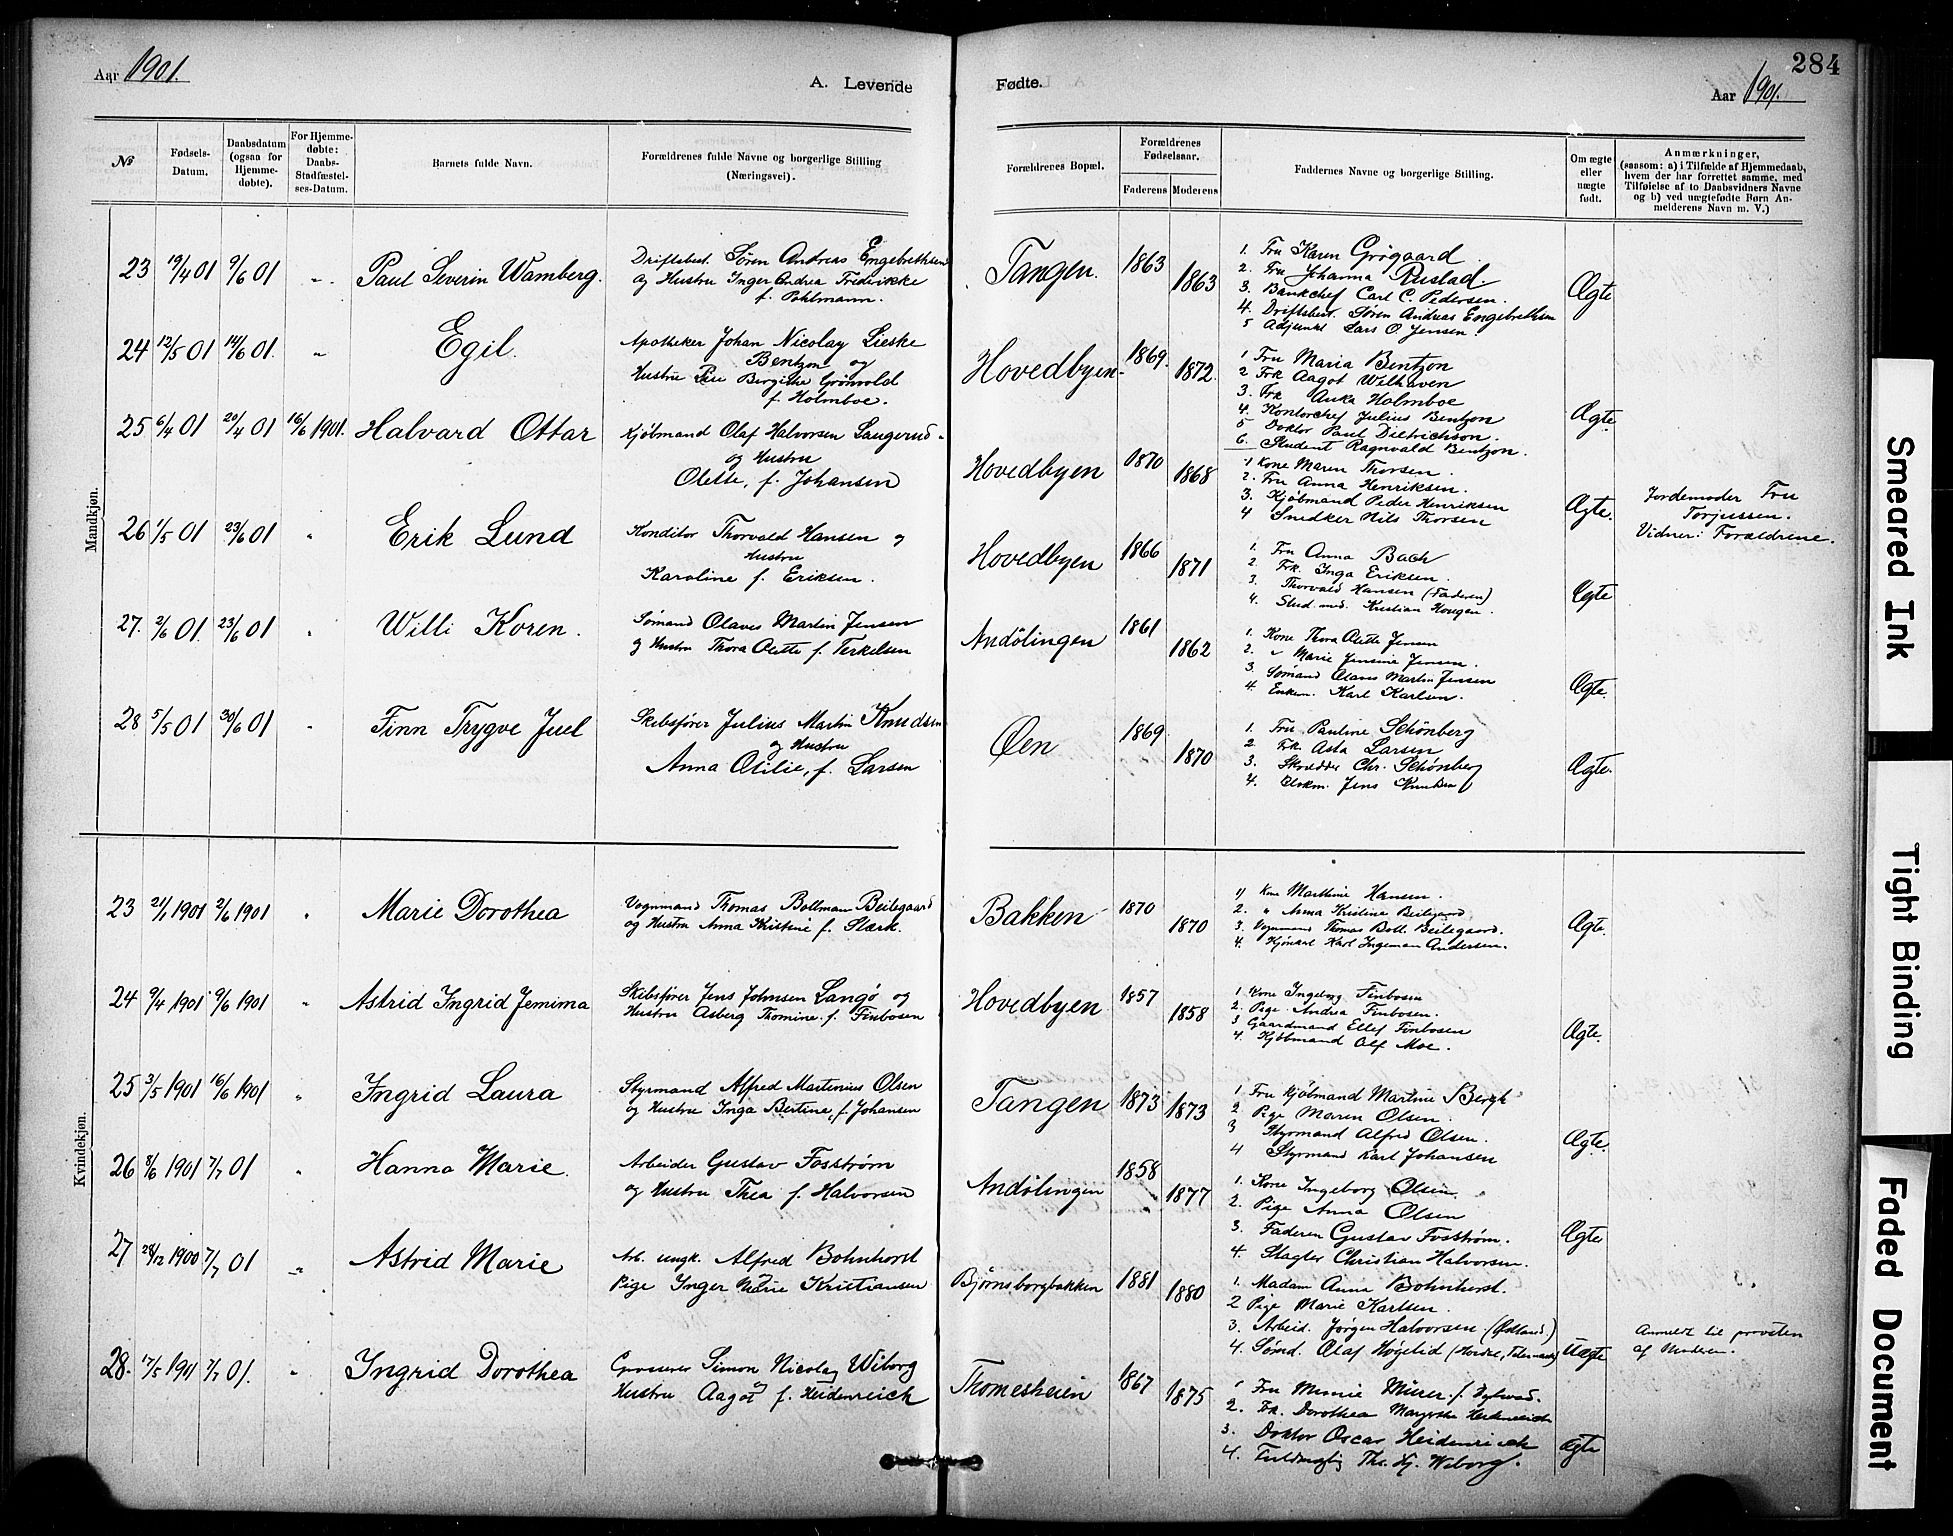 Aar 1901.
A. Levende
Fødte.
Aar 1901.
284
№
Fødsels-
Datum.
Daabsdatum
(ogsaa for
Hjemme-
døbte).
For Hjemme-
døbte:
Daabs-
Stadfæstel-
ses-Datum.
Barnets fulde Navn.
Forældrenes fulde Navne og borgerlige Stilling
(Næringsvei).
Forældrenes Bopæl.
Forældrenes
Fødselsaar.
Faderens
Moderens
Faddernes Navne og borgerlige Stilling.
Om ægte
eller
uægte
født.
Anmærkninger,
(saasom: a) i Tilfælde af Hjemmedaab,
hvem der har forrettet samme, med
Tilføielse af to Daabsvidners Navne
og b) ved uægtefødte Børn An-
melderens Navn m. V.)
Mandkjøn.
23 19/4 01 9/6 01 " Paul Severin Wamberg.
Driftsbest. Søren Andreas Engebrethsen
og Hustru Inger Andrea Frederikke
f. Pohlmann.
Tangen. 1863 1863
1. Fru Karen Grøgaard
2. Fru Johanna Rustad.
3. Bankchef Carl C. Pedersen.
4. Driftsbest. Søren Andreas Engebrethsen
5 Adjunkt Lars O. Jensen.
Ægte
24 12/5 01 14/6 01. " Egil.
Apotheker Johan Nicolay Lieske
Bentzon og
Hustru Birgitte Grønvold
f. Holmboe.
Hovedbyen 1869. 1872.
1 Fru Maria Bentzon
2 Frk Aagot Wilhaven
3. Frk Anka Holmboe
4. Kontorchef Julius Bentzon
5 Doktor Paul Dietrichson.
6. Student Ragnvald Bentzon.
Ægte.
25 6/4 01 20/4 01 16/6 1901. Halvard Ottar
Kjøbmand Olaf Halvorsen Laugerud
og Hustru
Olette, f. Johansen
Hovedbyen 1870 1868
1 Kone Maren Thorsen.
2. Fru Anna Henriksen.
3. Kjøbmand Peder Henriksen
4 Snedker Nils Thorsen
Ægte.
Jordemoder Fru
Torjussen.
Vidner: Forældrene.
26 1/5 01 23/6 01 " Erik Lund
Konditor Thorvald Hansen og
Hustru
Karoline f. Eriksen.
Hovedbyen 1866 1871
1. Fru Anna Bach
2. Frk. Inga Eriksen.
3. Thorvald Hansen (Faderen)
4. Stud. med. Kristian Hougen.
Ægte
27. 2/6 01. 23/6 01 " Willi Koren.
Sømand Olaves Martin Jensen
og Hustru Thora Olette f. Terkelsen
Andølingen 1861 1862
1. Kone Thora Olette Jensen
2. " Marie Jensine Jensen.
3. Sømand Olaves Martin Jensen
4. Enkem. Karl Karlsen.
Ægte.
28 5/5 01 30/6 01 " Finn Trygve Juel
Skibsfører Julius Martin Knudsen
og Hustru
Anna Otilie, f. Larsen
Øen 1869 1870
1. Fru Pauline Schönberg
2. Frk. Asta Larsen
3. Skrædder Chr. Schönberg
4. Jens Knudsen
Ægte.
Kvindekjøn.
23 21/1 1901 2/6 1901 " Marie Dorothea
Vognmand Thomas Bollman Beilegaard
og Hustru Anna Kristine f. Stærk.
Bakken 1870 1870
1) Kone Marthine Hansen.
2. " Anna Kristine Beilegaard
3. Vognmand Thomas Boll. Beilegaard.
4. Karl Ingeman Andersen.
Ægte.
24 9/4 1901 9/6 1901 " Astrid Ingrid Jemima
Skibsfører Jens Johnsen Langø og
Hustru Asberg Thomine f. Finbosen
Hovedbyen 1857 1858
1. Kone Ingeborg Finbosen
2. Pige Andrea Finbosen.
3 Gaardmand Ellef Finbosen
4. Kjøbmand Alf Moe.
Ægte.
25 3/5 1901 16/6 1901 " Ingrid Laura
Styrmand Alfred Martinius Olsen
og Hustru Inga Bertine, f. Johansen
Tangen 1873 1873
1 Fru Kjøbmand Martine Bergh
2 Pige Maren Olsen.
3 Styrmand Alfred Olsen.
4 Styrmand Karl Johansen
Ægte.
26 8/6 1901 7/7 01 " Hanna Marie.
Arbeider Gustav Fosstrøm
og Hustru Thea f. Halvorsen
Andølingen 1858 1877
1. Kone Ingeborg Olsen.
2. Pige Anna Olsen
3. Faderen Gustav Fosstrøm.
4. Slagter Christian Halvorsen.
Ægte
27 28/12 1900 7/7 01 " Astrid Marie
Arb. ungk. Alfred Bohnhorst
og
Pige Inger Marie Kristiansen
Bjørnsborgbakken 1881 1880
1. Madam Anna Bohnhorst.
2 Pige Marie Karlsen.
3. Arbeid. Jørgen Halvorsen. (Østland)
4. Sømd. Olaf Høgelid
Uægte
Anmeldt til provsten
af Moderen.
28. 17/5 1901 7/7 01. " Ingrid Dorothea
Grosserer Simon Nicolay Wiborg
og
Hustru Aagot f. Heidenreich
Thomesheien 1867 1875
1 Fru Minnie Mürer f.
2. Frk. Dorothea Margrethe Heidenreich
3. Doktor Oscar Heidenreich
4. Fuldmægtig Ths. Hj. Wiborg.
Ægte
Smeared Ink
Tight Binding
Faded Document